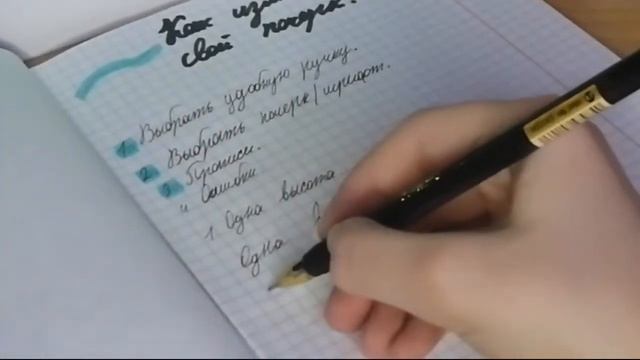 Как
свой почерк?
1 Выбрать удобную ручку.
2 Выбрать почерк/шрифт.
3 Прописи.
Ошибки
1 Одна высота
Одна